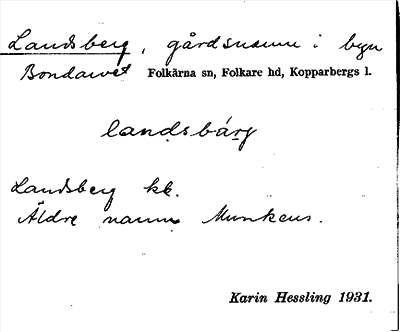 Landsberg, gårdsnamn i byn
Bondarvet Folkärna sn, Folkare hd, Kopparbergs l.
landsbárg
Landsberg kk.
Äldre namn Munkens.
Karin Hessling 1931.